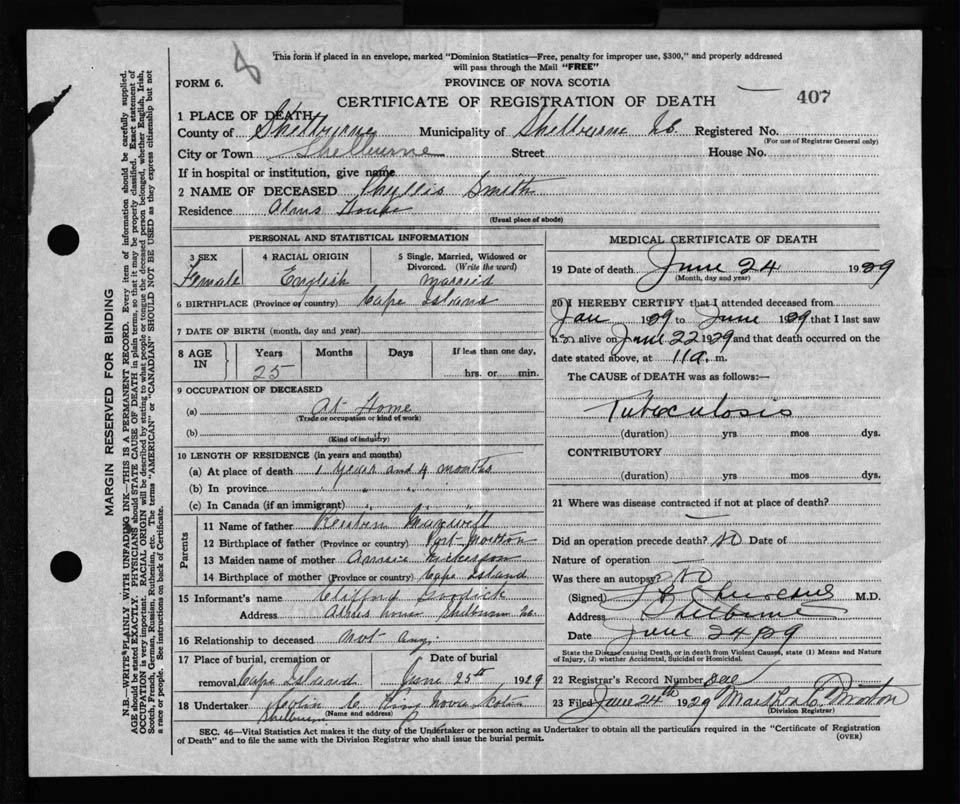 8
This form if placed in an envelope, marked "Dominion Statistics—Free, penalty for improper use, $300," and properly addressed
will pass through the Mail "FREE"
FORM 6.
PROVINCE OF NOVA SCOTIA
CERTIFICATE OF REGISTRATION OF DEATH
407
1 PLACE OF DEATH
County of Shelburne Municipality of Shelburne Registered No.
(For use of Registrar General only)
City or Town Shelburne Street House No.
If in hospital or institution, give name
2 NAME OF DECEASED Phyllis Smith
Residence Alms House
(Usual place of abode)
PERSONAL AND STATISTICAL INFORMATION
3 SEX 4 RACIAL ORIGIN 5 Single, Married, Widowed or
Divorced. (Write the word)
Female English Married
6 BIRTHPLACE (Province or country) Cape Island
7 DATE OF BIRTH (month, day and year)
8 AGE IN Years Months Days If less than one day,
25 hrs. or min.
9 OCCUPATION OF DECEASED
(a) At Home
(Trade or occupation or kind of work)
(b)
(Kind of industry)
10 LENGTH OF RESIDENCE (in years and months)
(a) At place of death 1 year and 4 months
(b) In province " " "
(c) In Canada (if an immigrant)
Parents
11 Name of father
12 Birthplace of father (Province or country) Port
13 Maiden name of mother Annie Nickerson
14 Birthplace of mother (Province or country) Cape Island
15 Informant's name Clifford
Address Alms house Shelburne
16 Relationship to deceased Not any.
17 Place of burial, cremation or Date of burial
removal Cape Island June 25th, 1929
18 Undertaker King Nova Scotia
Shelburne (Name and address)
MEDICAL CERTIFICATE OF DEATH
19 Date of death June 24 1929
(Month, day and year)
20 I HEREBY CERTIFY that I attended deceased from
Jan 1929 to June 1929 that I last saw
h er alive on June 22 1929 and that death occurred on the
date stated above, at 11 a. m.
The CAUSE of DEATH was as follows:—
Tuberculosis
(duration) yrs mos dys.
CONTRIBUTORY
(duration) yrs mos dys.
21 Where was disease contracted if not at place of death?
—
Did an operation precede death? no Date of
Nature of operation
Was there an autopsy? no
(Signed) M.D.
Address Shelburne
Date June 24 29
State the Disease causing Death, or in death from Violent Causes, state (1) Means and Nature
of Injury, (2) whether Accidental, Suicidal or Homicidal.
22 Registrar's Record Number
23 Filed June 24th 1929 Martha C.
(Division Registrar)
SEC. 46—Vital Statistics Act makes it the duty of the Undertaker or person acting as Undertaker to obtain all the particulars required in the "Certificate of Registration
of Death" and to file the same with the Division Registrar who shall issue the burial permit.
(OVER)
MARGIN RESERVED FOR BINDING
N.B.—WRITE PLAINLY WITH UNFADING INK—THIS IS A PERMANENT RECORD. Every item of information should be carefully supplied.
AGE should be stated EXACTLY. PHYSICIANS should STATE CAUSE OF DEATH in plain terms, so that it may be properly classified. Exact statement of
OCCUPATION is very important. RACIAL ORIGIN will be described by stating to what people or tongue the deceased person belonged, whether English, Irish,
Scotch, French, German, Russian, Ruthenian, etc. The terms "AMERICAN" or "CANADIAN" SHOULD NOT BE USED as they express citizenship but not
a race or people. See instructions on back of Certificate.